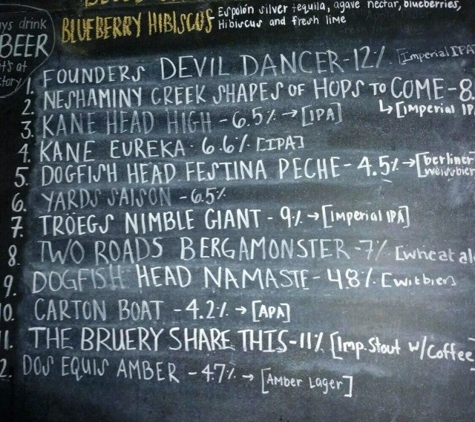 BLUEBERRY HIBISCUS Espolón silver tequila, agave nectar, blueberries,
Hibiscus and fresh lime
ys drink
BEER
t's at
story
1. FOUNDERS DEVIL DANCER-12% [Imperial IPA
2. NESHAMINY CREEK SHAPES OF HOPS TO COME-8.
↳[Imperial IP
3. KANE HEAD HIGH - 6.5% → [IPA]
4. KANE EUREKA - 6.6% [IPA]
5. DOGFISH HEAD FESTINA PECHE - 4.5% → [berliner
weissbier
6. YARDS SAISON - 6.5%
7. TRÖEGS NIMBLE GIANT - 9% → [Imperial IPA]
8. TWO ROADS BERGAMONSTER -7% [wheat al
9. DOGFISH HEAD NAMASTE - 4.8% [witbier]
10. CARTON BOAT - 4.2% → [APA]
11. THE BRUERY SHARE THIS-11% [Imp. Stout w/Coffee
2. DOS EQUIS AMBER - 4.7% → [Amber Lager]